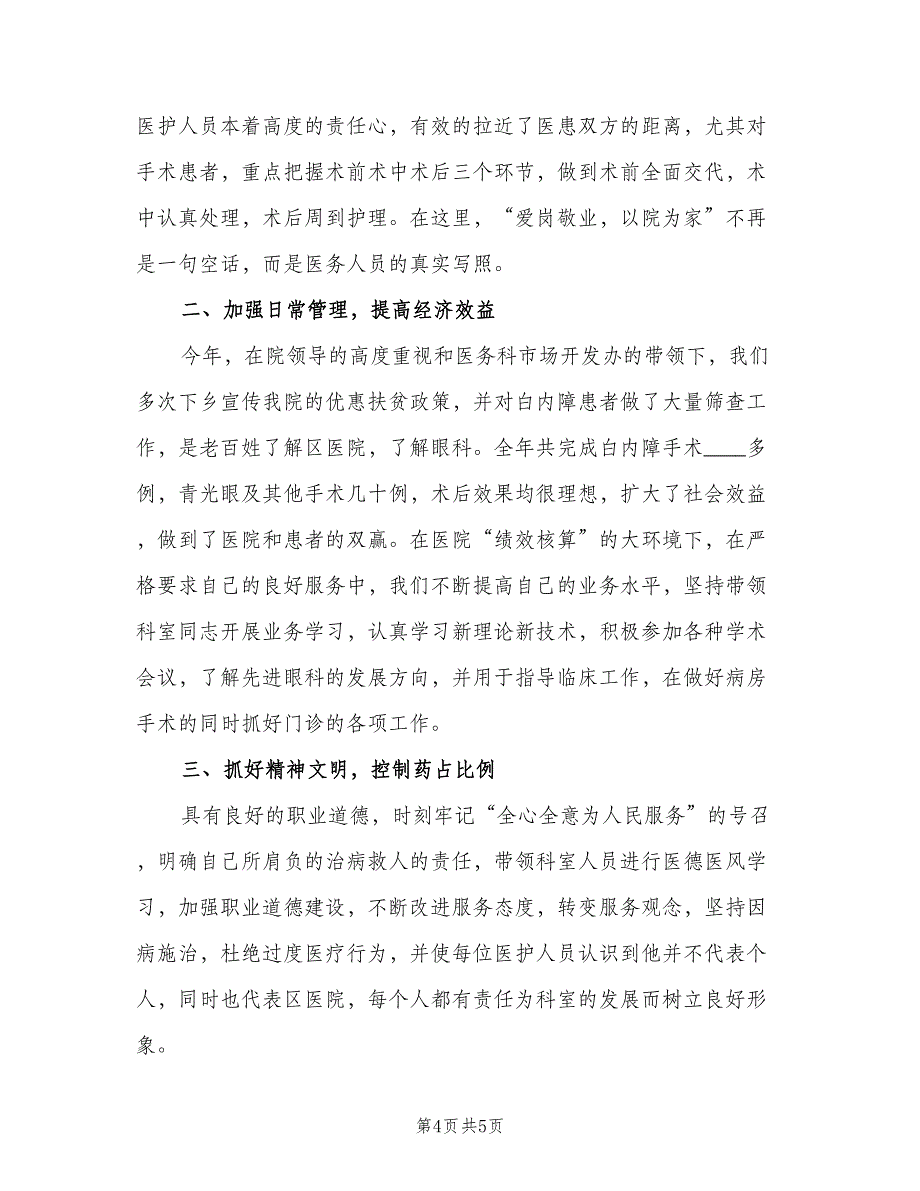 医护人员本着高度的责任心，有效的拉近了医患双方的距离，尤其对
手术患者，重点把握术前术中术后三个环节，做到术前全面交代，术
中认真处理，术后周到护理。在这里，“爱岗敬业，以院为家”不再
是一句空话，而是医务人员的真实写照。
二、加强日常管理，提高经济效益
今年，在院领导的高度重视和医务科市场开发办的带领下，我们
多次下乡宣传我院的优惠扶贫政策，并对白内障患者做了大量筛查工
作，是老百姓了解区医院，了解眼科。全年共完成白内障手术____多
例，青光眼及其他手术几十例，术后效果均很理想，扩大了社会效益
，做到了医院和患者的双赢。在医院“绩效核算”的大环境下，在严
格要求自己的良好服务中，我们不断提高自己的业务水平，坚持带领
科室同志开展业务学习，认真学习新理论新技术，积极参加各种学术
会议，了解先进眼科的发展方向，并用于指导临床工作，在做好病房
手术的同时抓好门诊的各项工作。
三、抓好精神文明，控制药占比例
具有良好的职业道德，时刻牢记“全心全意为人民服务”的号召
，明确自己所肩负的治病救人的责任，带领科室人员进行医德医风学
习，加强职业道德建设，不断改进服务态度，转变服务观念，坚持因
病施治，杜绝过度医疗行为，并使每位医护人员认识到他并不代表个
人，同时也代表区医院，每个人都有责任为科室的发展而树立良好形
象。
第4页共5页